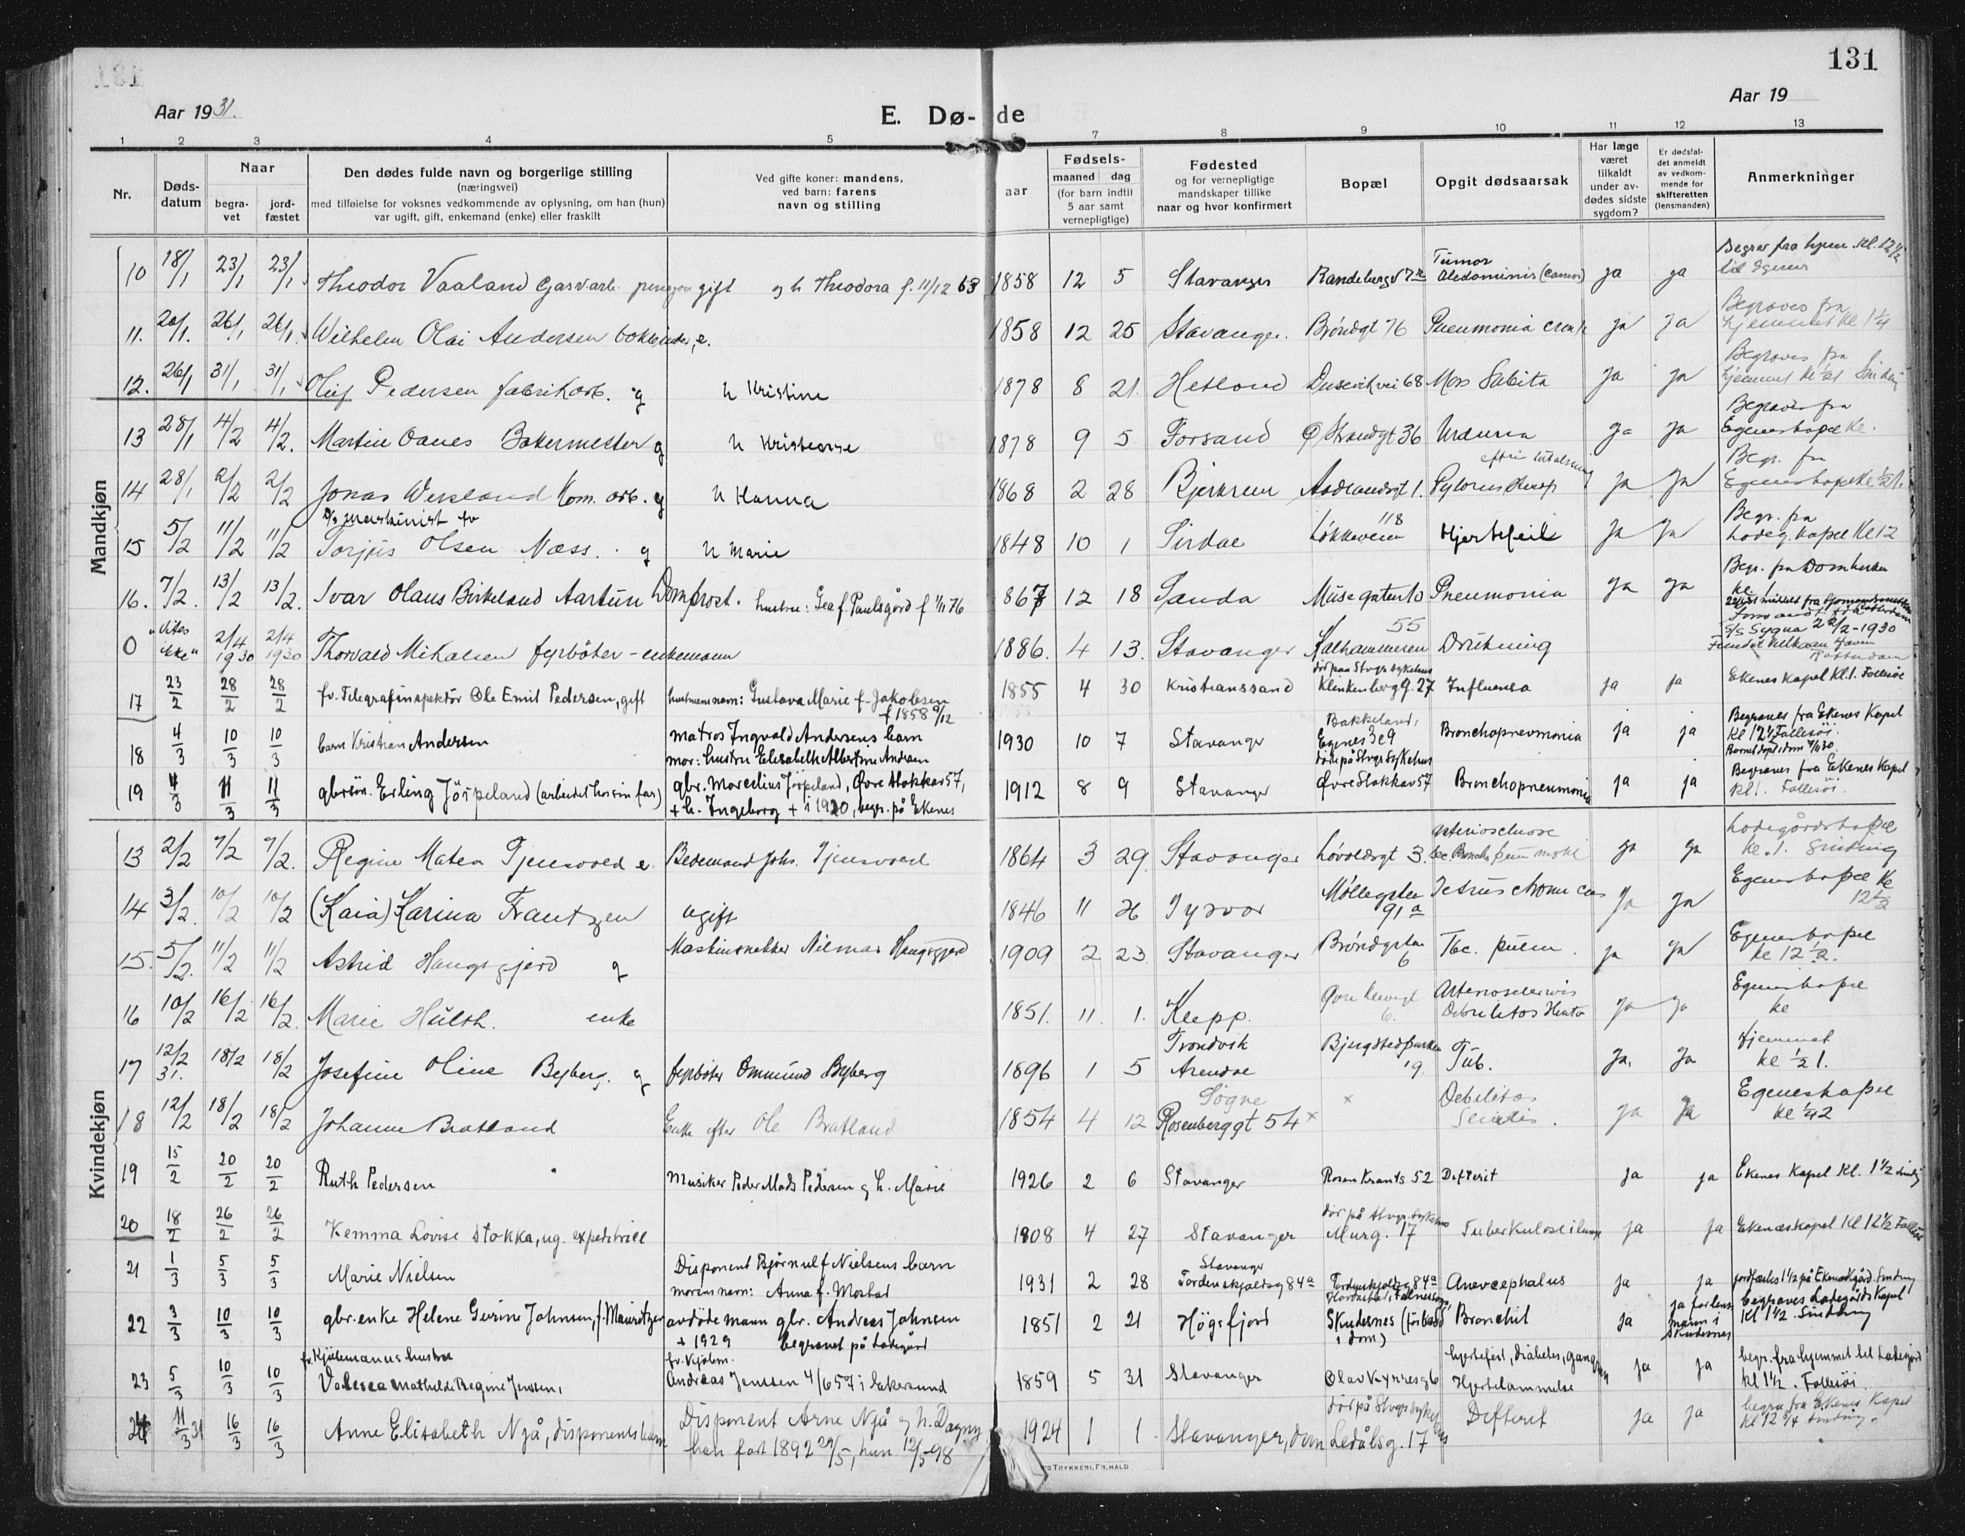 131
Aar 1931.
E. Dø- de
Aar 19
1 2 3 4 5 7 8 9 10 11 12 13
Nr.
Døds-datum
Naar
begra-vet
jord-fæstet
Den dødes fulde navn og borgerlige stilling
(næringsvei)
med tilføielse for voksnes vedkommende av oplysning, om han (hun)
var ugift, gift, enkemand (enke) eller fraskilt
Ved gifte koner: mandens,
ved barn: farens
navn og stilling
aar
Fødsels-
maaned dag
(for barn indtil
5 aar samt
vernepligtige)
Fødested
og for vernepligtige
mandskaper tillike
naar og hvor konfirmert
Bopæl
Opgit dødsaarsak
Har læge
været
tilkaldt
under av-
dødes sidste
sygdom?
Er dødsfal-
det anmeldt
av vedkom-
mende for
skifteretten
(lensmanden)
Anmerkninger
Mandkjøn
10 18/1 23/1 23/1 Theodor Vaaland Gasvarb. gift og h Theodora f. 11/12 63 1858 12 5 Stavanger Randebergv Tumor (cancer) ja ja Begrav fra hjem. kl. 12 1/2 til Egenes
11. 20/1. 26/1 26/1 Wilhelm Olai Andersen bokbinder, e. 1858 12 25 Stavanger. Bröndgt 76 Pneumonia ja ja Begraves fra hjemmet kl 1 1/4
12. 26/1 31/1 31/1 Oluf Pedersen fabrikarb. g h Kristine 1878 8 21. Hetland Dusevikvei 68 ja ja Begraves fra hjemmet
13 28/1 4/2 4/2. Martin Oanes Bakermester g h 1878 9 5 Forsand Ø Strandgt 36 Uræmia ja ja Begraves fra Egeneskapel kl.
14 28/1 2/2 2/2 Jonas Kom. arb. g h Hanna 1868 2 28 Bjerkreim 1. ja ja Begr. fra Egeneskapel kl 1/2 1.
15 5/2 11/2 11/2 D/s maskinist fv Torjus Olsen Næss. g h Marie 1848 10 1 Sirdal Løkkeveien 118 Hjertefeil ja ja Begr. fra Lodeg. kapel kl 12
16. 7/2. 13/2 13/2. Ivar Olaus Birkeland Aartun Domprost. hustru: Gea f. Paulsgård f 1/11 76 1867 12 18 Sanda Musegaten 10 Pneumonia ja ja Begr. fra Domkirken kl
0 "Vites ikke" 2/4 1930 2/4 1930 Thorvald Mikalsen fyrböter - enkemann 1886. 4 13. Stavanger Kalhammeren 55 Drukning S/S Sygna 22/2-1930
17 23/2 28/2 28/2 fv. Telegrafinspektör Ole Emil Pedersen, gift hustruens navn: Gustava Marie f. Jakobsen f 1858 9/12 1855 4 30 Kristianssand död paa Stvgr. Sykehus Klinkenbergg. 27 Influensa ja ja Ekenes kapel kl. 1. Fallesöe
18 4/3 10/3 10/3 barn Kristian Andersen matros Ingvald Andersens barn mor: hustru Elisabeth Albertine Andersen 1930 10 7 Stavanger Bakkeland, Egenes 3 e 9 död på Stvgr Sykehus Bronchopnevmonia ja ja Begraves fra Ekenes Kapel kl 12 1/2 Fallesöi.
19 4/3 11/3 11/3 gbrsön. Erling Jörpeland (arbeidet hos sin far) gbr. Marcelius Jörpeland, Övre Stokkav 57, + h. Ingeborg + i 1920, begr. på Ekenes 1912 8 9 Stavanger Övre Stokkav 57 Bronchopneumonia ja ja Begraves fra Ekenes Kapel kl 1. Fallesöi.
Kvindekjøn
13 2/2 7/2 7/2. Regine Matea Tjensvold e Bedemand Johs. Tjensvold 1864 3 29. Stavanger Løvdalsgt 3. ja ja Lodegårdskapel kl. 1. Sinding
14 3/2. 10/2 10/2 (Kaia) Karina Frantzen ugift 1846 11 26 Tysvær Møllegaten 91a ja ja Egeneskapel kl 12 1/2
15. 5/2. 11/2 11/2 Astrid g 1909 2 23. Stavanger Brøndgaten 6 Tbc. pulm. ja ja Egeneskapel kl 12 1/2.
16 10/2 16/2 16/2. Marie Hülth. enke 1851. 11. 1. Klepp. 6. Arteriosclerosis ja ja Egeneskapel kl
17 12/2 31. 18/2 18/2 Josefine Oline Byberg. g fyrböter Ommund Byberg 1896 1 5 Tromövik Arendal Bjergstedparken 19. Tub. ja. ja Hjemmet kl 1/2 1.
18 12/2 18/2 18/2 Johanne Bratland Enke efter Ole Bratland 1854 4 12 Søgne Rosenberggt 54 x x Debilitas Senilis. ja ja Egeneskapel
19 15/2 20/2 20/2 Ruth Pedersen Musiker Peder Mads Pedersen g h. Marie 1926 2 6 Stavanger Rosenkrants 52 Difterit ja ja Ekenes Kapel kl. 1 1/2 Sinding
20 18/2 26/2 26/2 Kemma Lovise Stokka, ug. expeditrice 1908 4 27 Stavanger död på Stvgr. Sykehus Murg. 17 ja ja Ekenæskapel kl 12 1/2 Fallesöi
21 1/3 5/3 5/3 Marie Nielsen Disponent Björnulf Nielsens barn morens navn: Anna f. Mostad 1931 2 28 Stavanger Tordenskjoldsg 84a Tordenskjoldsg 84a Anencephalus ja ja jordfæstes 1 1/2 på Ekenæsgård. Sinding
22 3/3 10/3 10/3 gbr. enke Helene Gurine Johnsen, f. Mauritzen avdöde mann gbr. Andreas Johnsen + 1929 begravet på Ladegård 1851 2 21 Högsfjord Skudesnes Bronchit ja ja for lensmann i Skudesnes begraves Ladegårds Kapel kl 1 1/2 Sinding
23 5/3 10/3 10/3 fv. Kjölemanns hustru Valesca Mathilde Regine Jenssen, fv. Kjölem. Andreas Jenssen 4/6 57 i Eekersund 1859 5 31 Stavanger Olav Kyrresg 6 hjertefeil, diabetes, gangren Hjertelammelse ja ja begr. fra hjemmet til Ladegård kl 1 1/2. Fallesöi
24 11/3 31 16/3 16/3 Anne Elisabeth Njå, disponents barn Disponent Arne Njå g h. Dagny han født 1892 29/5, hun 12/5-98 1924 1 1. Stavanger, dom Ledålsg. 17 död på Stvgr Sykehus Difterit ja ja begra fra Ekenes Kapel kl 12 1/4 Sinding.
TRYKKERI, FR. HALD